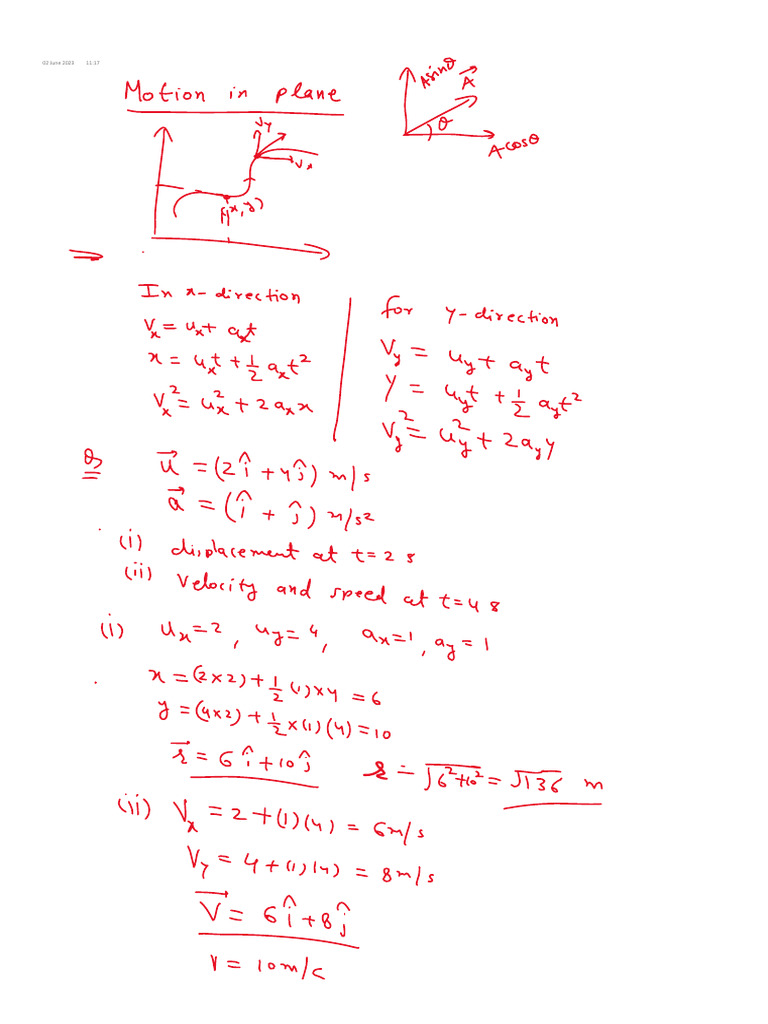 02 June 2023 11:17
Motion in plane
A sinθ
A⃗
θ
A cosθ
Vy
Vx
(x, y)
⇒
In x-direction
Vx = ux + axt
x = uxt + 1/2 axt²
Vx² = ux² + 2axx
for y-direction
Vy = uy + ayt
Y = uyt + 1/2 ayt²
Vy² = uy² + 2ayy
Q
u⃗ = (2î + 4ĵ) m/s
a⃗ = (î + ĵ) m/s²
(i) displacement at t=2 s
(ii) Velocity and speed at t=4 s
(i) ux=2, uy=4, ax=1, ay=1
x = (2×2) + 1/2 (1)×4 = 6
y = (4×2) + 1/2 ×(1)(4) = 10
r⃗ = 6î + 10ĵ r = √6²+10² = √136 m
(ii) Vx = 2 + (1)(4) = 6m/s
Vy = 4 + (1)(4) = 8m/s
V⃗ = 6î + 8ĵ
V = 10m/s